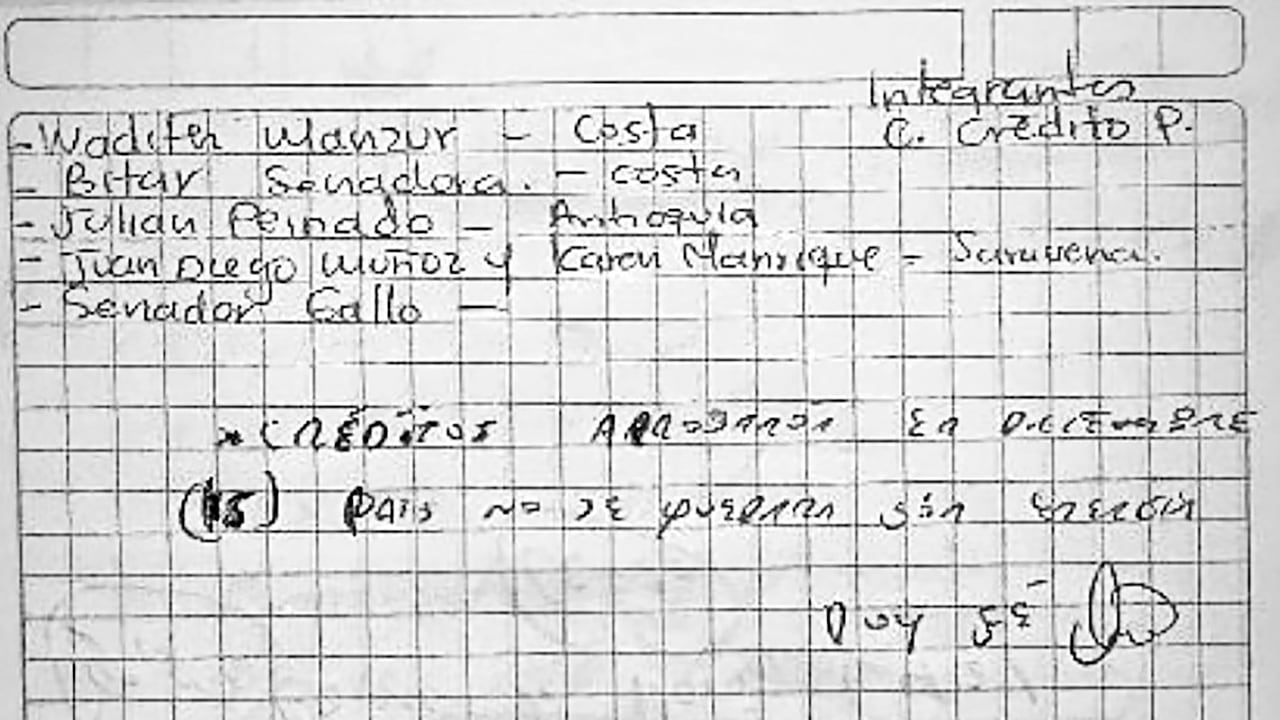 Integrantes
C. Crédito P.
- Wadith Manzur - Costa
- Bitar Senadora. - costa
- Julian Peinado - Antioquia
- Juan Diego Muñoz y Karen Manrique - Saravena.
- Senador Gallo -
* CRÉDITOS APROBARON En DICIEMBRE
(15) PAIS no SE QUEDARA sin EnERGIA
Doy FÉ